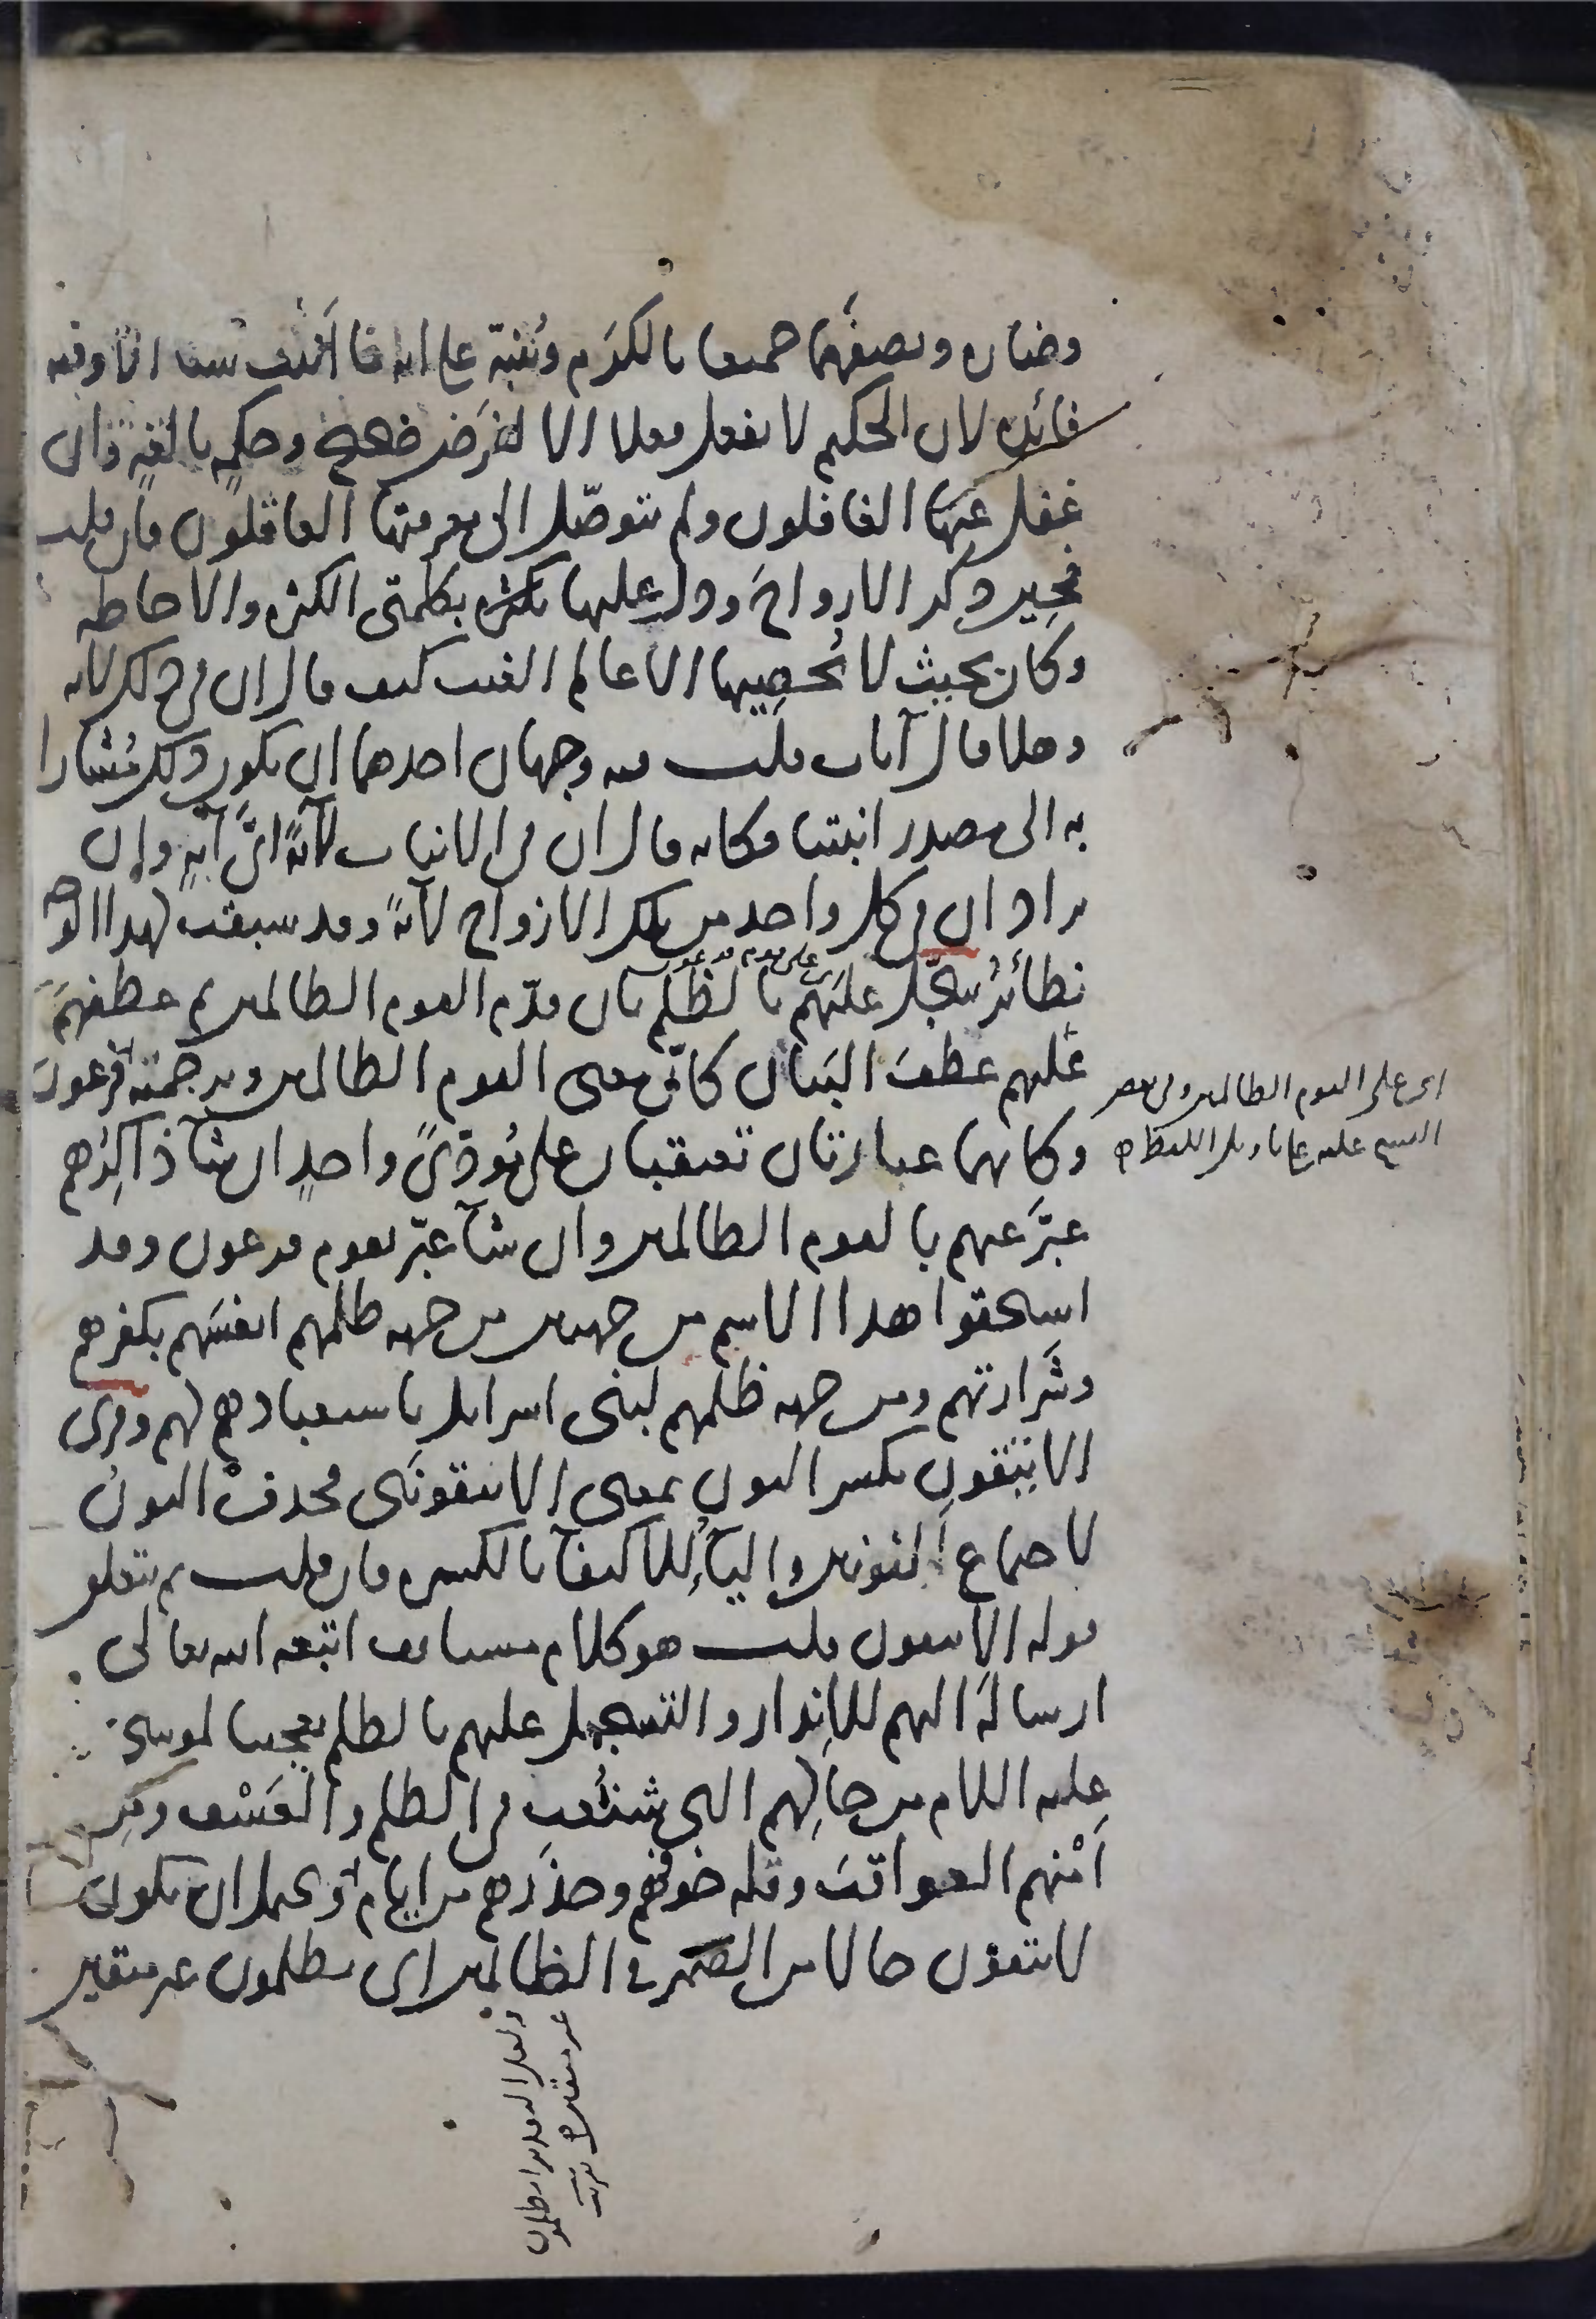 وضاره ويصفهما جميعا بالكرم وتنبه على انه ما انبت شيئا الا وفيه
فائدة لان الحكيم لا يفعل فعلا الا لغرض صحيح وحكمة بالغة وان
غفل عنها الغافلون ولم يتوصّل الى معرفتها العاقلون فان قلت
فحين ذكر الازواج ودل عليها بكلمتي الكثرة والاحاطة
وكان بحيث لا يُحصيها الا عالم الغيب كيف قال ان في ذلك لاية
وهلا قال آيات قلت فيه وجهان احدهما ان يكون ذلك مُشارا
به الى مصدر انبتنا فكانه قال ان في الانبات لآيةً ايّ آيةٍ وان
يراد ان في كل واحد من تلك الازواج لآيةً وقد سبقت لهذا الوجه
نظائرُ سجّل عليهم بالظلم بان قدّم القوم الظالمين ثم عطفهم
اى على قوم فرعون
عليهم عطفَ البيان كانّ معنى القوم الظالمين وترجمته قوم فرعون
وكانهما عبارتان تعتقبان على مُؤدّىً واحدٍ ان شآ ذاكرُهم
عبّر عنهم بالقوم الظالمين وان شآ عبّر بقوم فرعون وقد
استحقوا هذا الاسم من جهتين من جهة ظلمهم انفسَهم بكفرهم
وشَرارتهم ومن جهة ظلمهم لبنى اسرايل باستعبادهم لهم وقرى
الا يتقونِ بكسر النون بمعنى الا يتقونَنى فحذفْ النونُ
لاجتماع النونين واليآءُ للاكتفآ بالكسرة فان قلت بم يتعلق
قوله الا يتقون قلت هو كلام مستانف اتبعه الله تعالى
ارسالَهُ اليهم للاِنذار والتسجيل عليهم بالظلم تعجيبا لموسى
عليه السلام من حالِهم التي شنُعت في الظلم والعَسْف ومِن
اَمْنهم العواقبَ وقلة خوفهم وحذَرهم من ايام الله ويحتمل ان يكون
لا يتقون حالا من الضمير في الظالمين اى يظلمون غير متقين
اى على القوم الظالمين وفى بعض
النسخ عليه على تاويل اللفظ
ولعل التقدير ا يظلمون
غير متقين